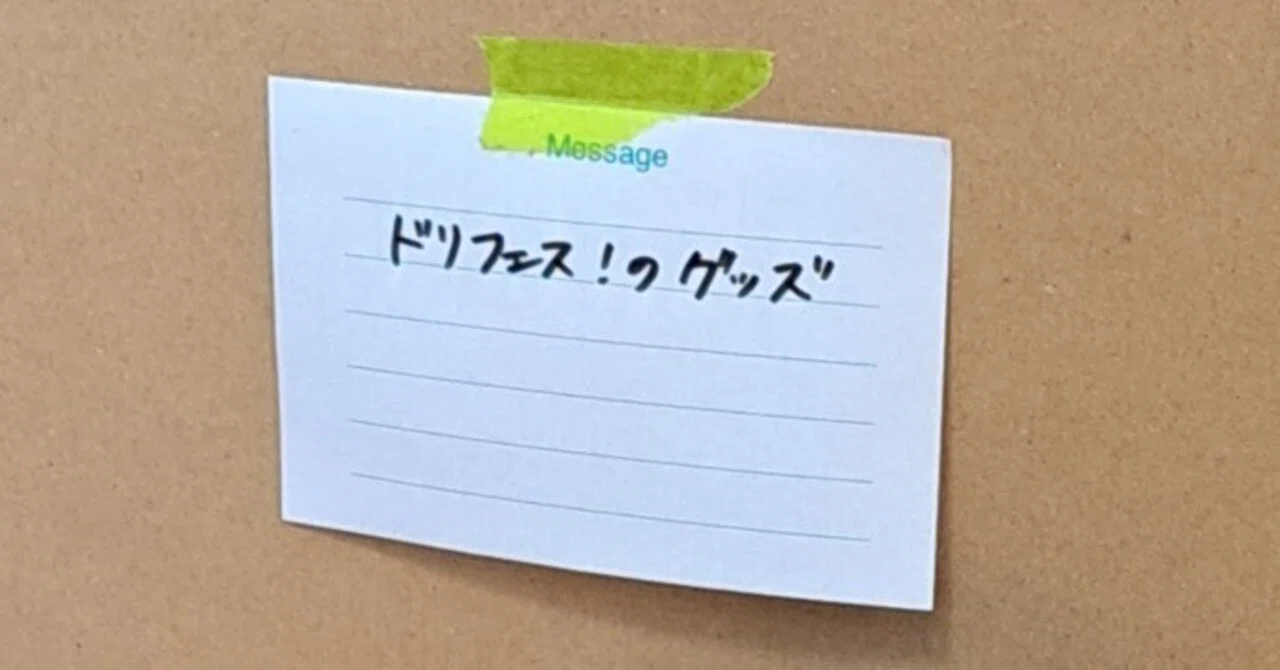 Message
ドリフェス！のグッズ